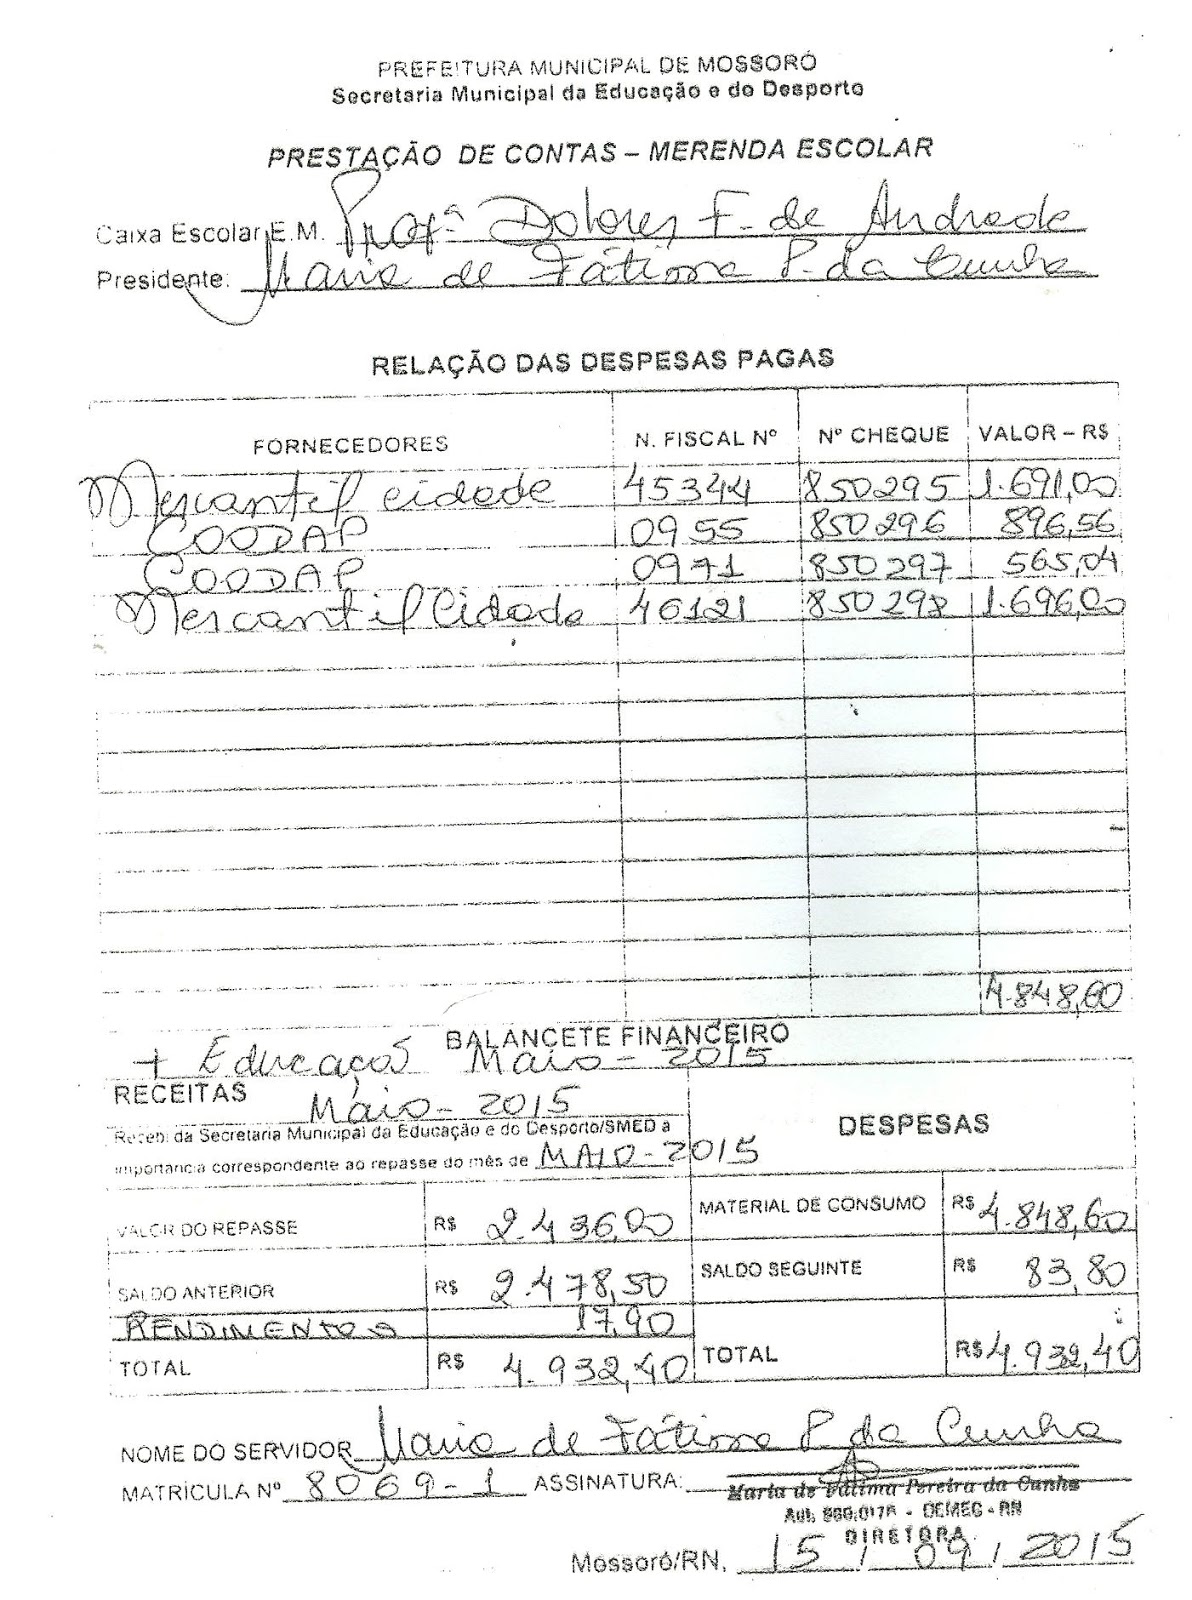 PREFEITURA MUNICIPAL DE MOSSORÓ
Secretaria Municipal da Educação e do Desporto
PRESTAÇÃO DE CONTAS – MERENDA ESCOLAR
Caixa Escolar E.M. Profª Dolores F. de Andrade
Presidente: Maria de Fátima P. da Cunha
RELAÇÃO DAS DESPESAS PAGAS
FORNECEDORES N. FISCAL Nº Nº CHEQUE VALOR – R$
Mercantil cidade 45344 850295 1.691,00
COODAP 0955 850296 896,56
COODAP 0971 850297 565,04
Mercantil Cidade 46121 850298 1.696,00
4.848,60
BALANCETE FINANCEIRO
+ Educação Maio - 2015
RECEITAS
Maio - 2015
DESPESAS
Receb. da Secretaria Municipal da Educação e do Desporto/SMED a
importancia correspondente ao repasse do mês de MAIO - 2015
VALOR DO REPASSE R$ 2.436,00 MATERIAL DE CONSUMO R$ 4.848,60
SALDO ANTERIOR R$ 2.478,50 SALDO SEGUINTE R$ 83,80
RENDIMENTOS 17,90
TOTAL R$ 4.932,40 TOTAL R$ 4.932,40
NOME DO SERVIDOR Maria de Fátima P. da Cunha
MATRÍCULA Nº 8069-1 ASSINATURA:
Maria de Fátima Pereira da Cunha
DEMEC - RN
DIRETORA
Mossoró/RN, 15 / 09 / 2015